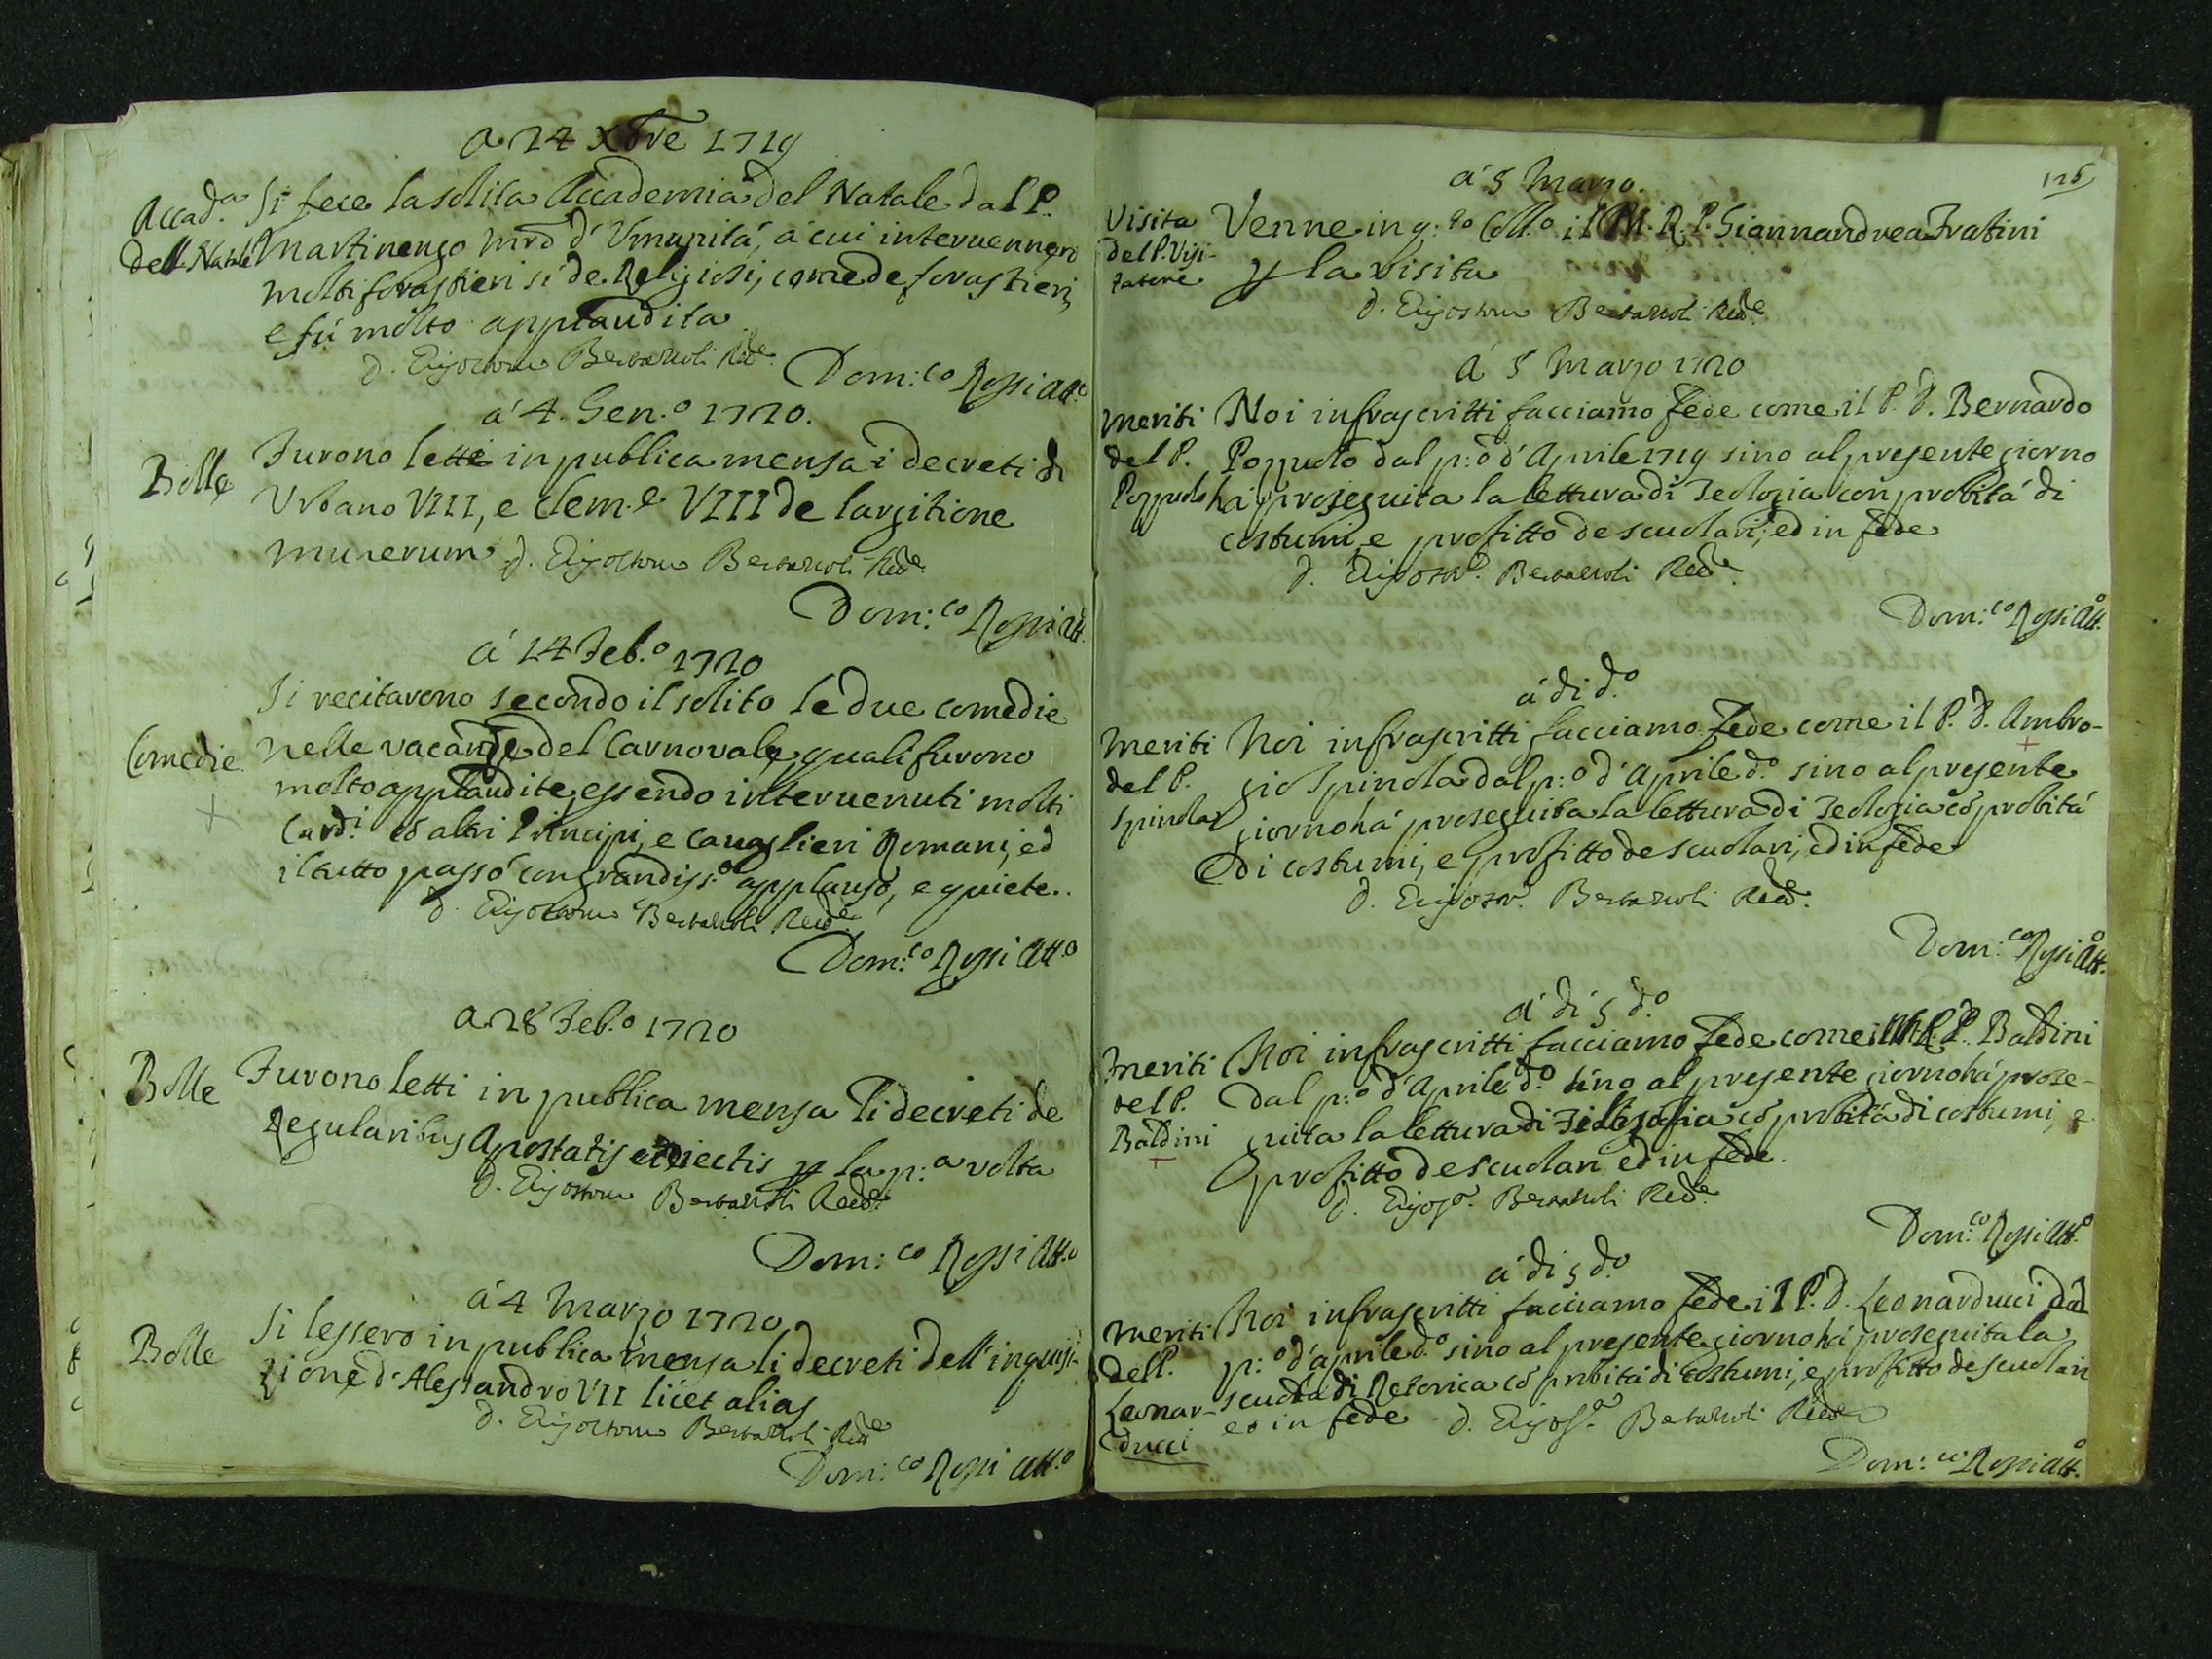 a 24 Xbre 1719
Accad.a Si fece la solita Accademia del Natale dal P.
del Natale Martinengo Mro d' Vmanità, á cui interuennero
molti forastieri sì de Religiosi, come de forastieri,
e fù molto applaudita
Dom:co Rossi Att.o
a' 4. Gen.o 1720.
Bolle Furono letti in publica mensa i decreti di
Vrbano VIII, e Clem.e VIII de largitione
munerum
Dom:co Rossi Att.
á 14 Feb.o 1720
Si recitarono secondo il solito le due comedie
Comedie nelle vacanze del Carnovale, quali furono
molto applaudite, essendo interuenuti molti
Card.i ed altri Principi, e Cauaglieri Romani, ed
il tutto passó con grandiss.o applauso, e quiete..
Dom:co Rossi Att.o
a 28 Feb.o 1720
Bolle Furono letti in publica mensa li decreti de
Regularibus Apostatis et eiectis p la p:a volta
Dom:co Rossi Att.o
á 4 Marzo 1720
Bolle Si lessero in publica mensa li decreti dell' inquisi-
zione d' Alessandro VII licet alias
Dom:co Rossi Att.o
126
á 5 Marzo.
Visita Venne in q:to Coll.o il M. R. P. Giannandrea Fratini
del P. Visi- p la visita
tatore
Á 5 Marzo 1720
Meriti Noi infrascritti facciamo fede come il P. D. Bernardo
del P. Pozzuolo dal p:o d' Aprile 1719 sino al presente giorno
Pozzuolo há proseguita la lettura di Teologia con probitá di
costumi, e profitto de scuolari; ed in fede
Dom:co Rossi Att.o
á di d.o
Meriti Noi infrascritti facciamo fede come il P. D. Ambro-
del P. gio Spinola dal p:o d' Aprile d.o sino al presente
Spinola giorno há proseguita la lettura di Teologia cõ probitá
di costumi, e profitto de scuolari, ed in fede
Dom:co Rossi Att.o
á di 5 d.o
Meriti Noi infrascritti facciamo fede come il M. R. P. Baldini
del P. dal p:o d' Aprile d.o sino al presente giorno há prose-
Baldini guita la lettura di Filosofia cõ probitá di costumi, e
profitto de scuolari ed in fede.
Dom:co Rossi Att.o
á di 5 d.o
Meriti Noi infrascritti facciamo fede il P. D. Leonarducci dal
del P. p:o d' Aprile d.o sino al presente giorno há proseguita la
Leonar- scuola di Retorica cõ probitá di costumi, e profitto de scuolari
ducci ed in fede
Dom:co Rossi Att.o